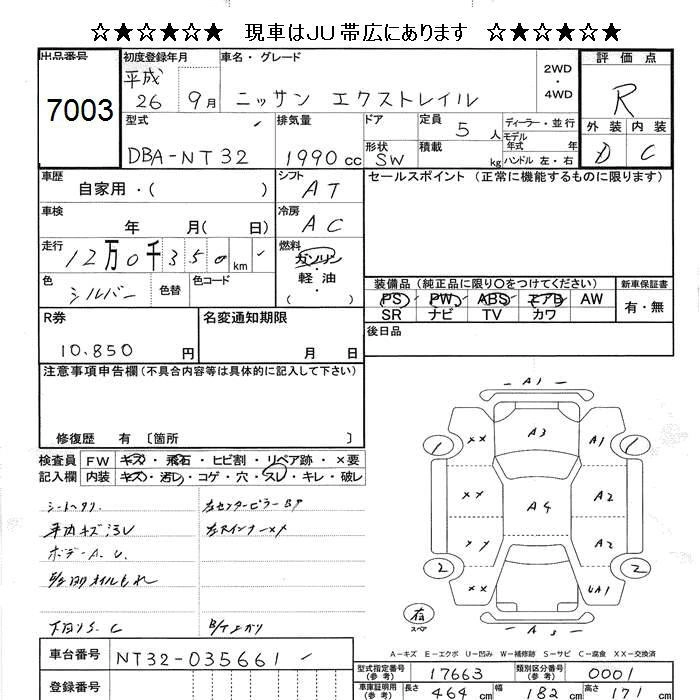 ☆★☆★☆★ 現車はJU帯広にあります ☆★☆★☆★
出品番号
7003
初度登録年月
平成
26 9月
車名・グレード
ニッサン エクストレイル
2WD
・
4WD
評価点
R
外装 内装
D C
型式
DBA-NT32
排気量
1990 cc
ドア
形状
SW
定員
5 人
積載
kg
ディーラー・並行
モデル
年式 年
ハンドル 左・右
車歴
自家用・( )
シフト
AT
セールスポイント (正常に機能するものに限ります)
車検
年 月( 日)
冷房
AC
走行
12万0千350 km
燃料
ガソリン
・
軽油
( ・ )
色
シルバー
色替
色コード
装備品 (純正品に限り〇をつけてください)
PS PW ABS エアB AW
SR ナビ TV カワ
新車保証書
有・無
R券
10.850 円
名変通知期限
月 日
後日品
注意事項申告欄 (不具合内容等は具体的に記入して下さい)
修復歴 有 〔箇所 〕
検査員
記入欄
FW キズ・飛石・ヒビ割・リペア跡・×要
内装 キズ・汚レ・コゲ・穴・スレ・キレ・破レ
左センターピラーBP
ボデーA.U.
下回りS.C
A1
1 XX A3 A1 1
XX A4 A2
XX A2
2 XX UA1 2
有
スペア
A-キズ E-エクボ U-凹み W-補修跡 S-サビ C-腐食 XX-交換済
車台番号
NT32-035661
登録番号
型式指定番号
(参考)
17663
類別区分番号
(参考)
0001
車庫証明用
(参考)
長さ 464 cm 幅 182 cm 高さ 171 cm